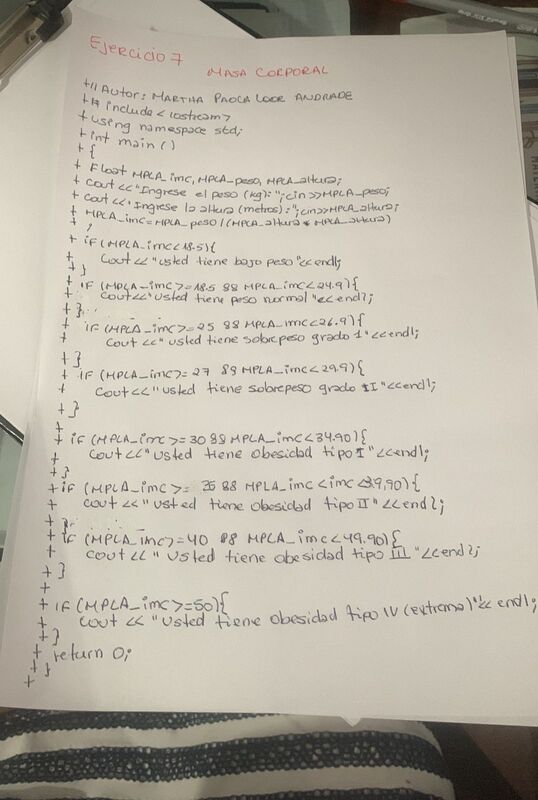 Ejercicio 7
MASA CORPORAL
+// Autor: MARTHA PAOLA LOOR ANDRADE
+# include <iostream>
+ using namespace std;
+ int main ()
+ {
+ Float MPLA_imc, MPLA_peso, MPLA_altura;
+ cout <<"Ingrese el peso (kg): ";cin>>MPLA_peso;
+ cout <<"Ingrese la altura (metros): ";cin>>MPLA_altura;
+ MPLA_imc=MPLA_peso /(MPLA_altura * MPLA_altura)
+ ;
+ if (MPLA_imc<18.5){
+ Cout <<"usted tiene bajo peso"<<endl;
+ }
+ if (MPLA_imc>=18.5 && MPLA_imc<24.9){
+ Cout<<"usted tiene peso normal"<<endl;
+ }
+ if (MPLA_imc>=25 && MPLA_imc<26.9){
+ cout <<"usted tiene sobrepeso grado I"<<endl;
+ }
+ if (MPLA_imc>=27 && MPLA_imc<29.9){
+ cout <<"usted tiene sobrepeso grado II"<<endl;
+ }
+
+ if (MPLA_imc>=30 && MPLA_imc<34.90){
+ cout <<"usted tiene obesidad tipo I"<<endl;
+ }
+ if (MPLA_imc>= 35 && MPLA_imc<imc<39,90){
+ cout <<"usted tiene obesidad tipo II"<<endl;
+ }
+ if (MPLA_imc>=40 && MPLA_imc<49.90){
+ cout <<"usted tiene obesidad tipo III"<<endl;
+ }
+
+ if (MPLA_imc>=50){
+ cout <<"usted tiene obesidad tipo IV (extrema)"<<endl;
+ }
+ return 0;
+ }
+